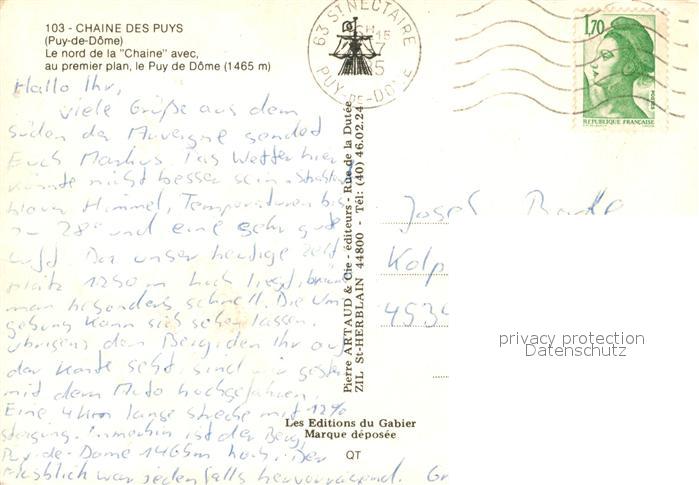 103 - CHAINE DES PUYS
(Puy-de-Dôme)
Le nord de la "Chaine" avec,
au premier plan, le Puy de Dôme (1465 m)
Hallo Ihr,
viele Grüße aus dem
Süden der Auvergne sendet
Euch Markus. Das Wetter hier
könnte nicht besser sein. Strahlend
blauer Himmel, Temperaturen bis
zu 28° und eine sehr gute
Luft. Da unser heutige Zelt
platz 1250 m hoch liegt, bräunt
man besonders schnell. Die Um
gebung kann sich sehen lassen.
Übrigens den Berg, den Ihr auf
der Karte seht, sind wir gestern
mit dem Auto hochgefahren.
Eine 4 km lange Strecke mit 12%
Steigung. Immerhin ist der Berg,
Puy-de-Dome 1465m hoch. Der
Ausblick war jedenfalls hervorragend. Gr
63 ST NECTAIRE
PUY-DE-DOME
Pierre ARTAUD & Cie - éditeurs - Rue de la Dutée
ZIL St-HERBLAIN 44800 - Tél: (40) 46.02.24
Les Editions du Gabier
Marque déposée
QT
1,70
POSTES
REPUBLIQUE FRANÇAISE
Josef
Kolp
453
privacy protection
Datenschutz